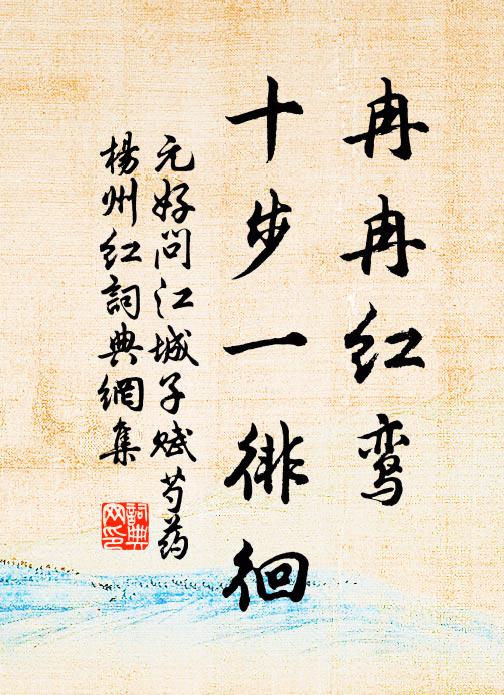 冉冉红鸾
十步一徘徊
元好问江城子赋芍药
楊州红詞典網集
詞典
网印